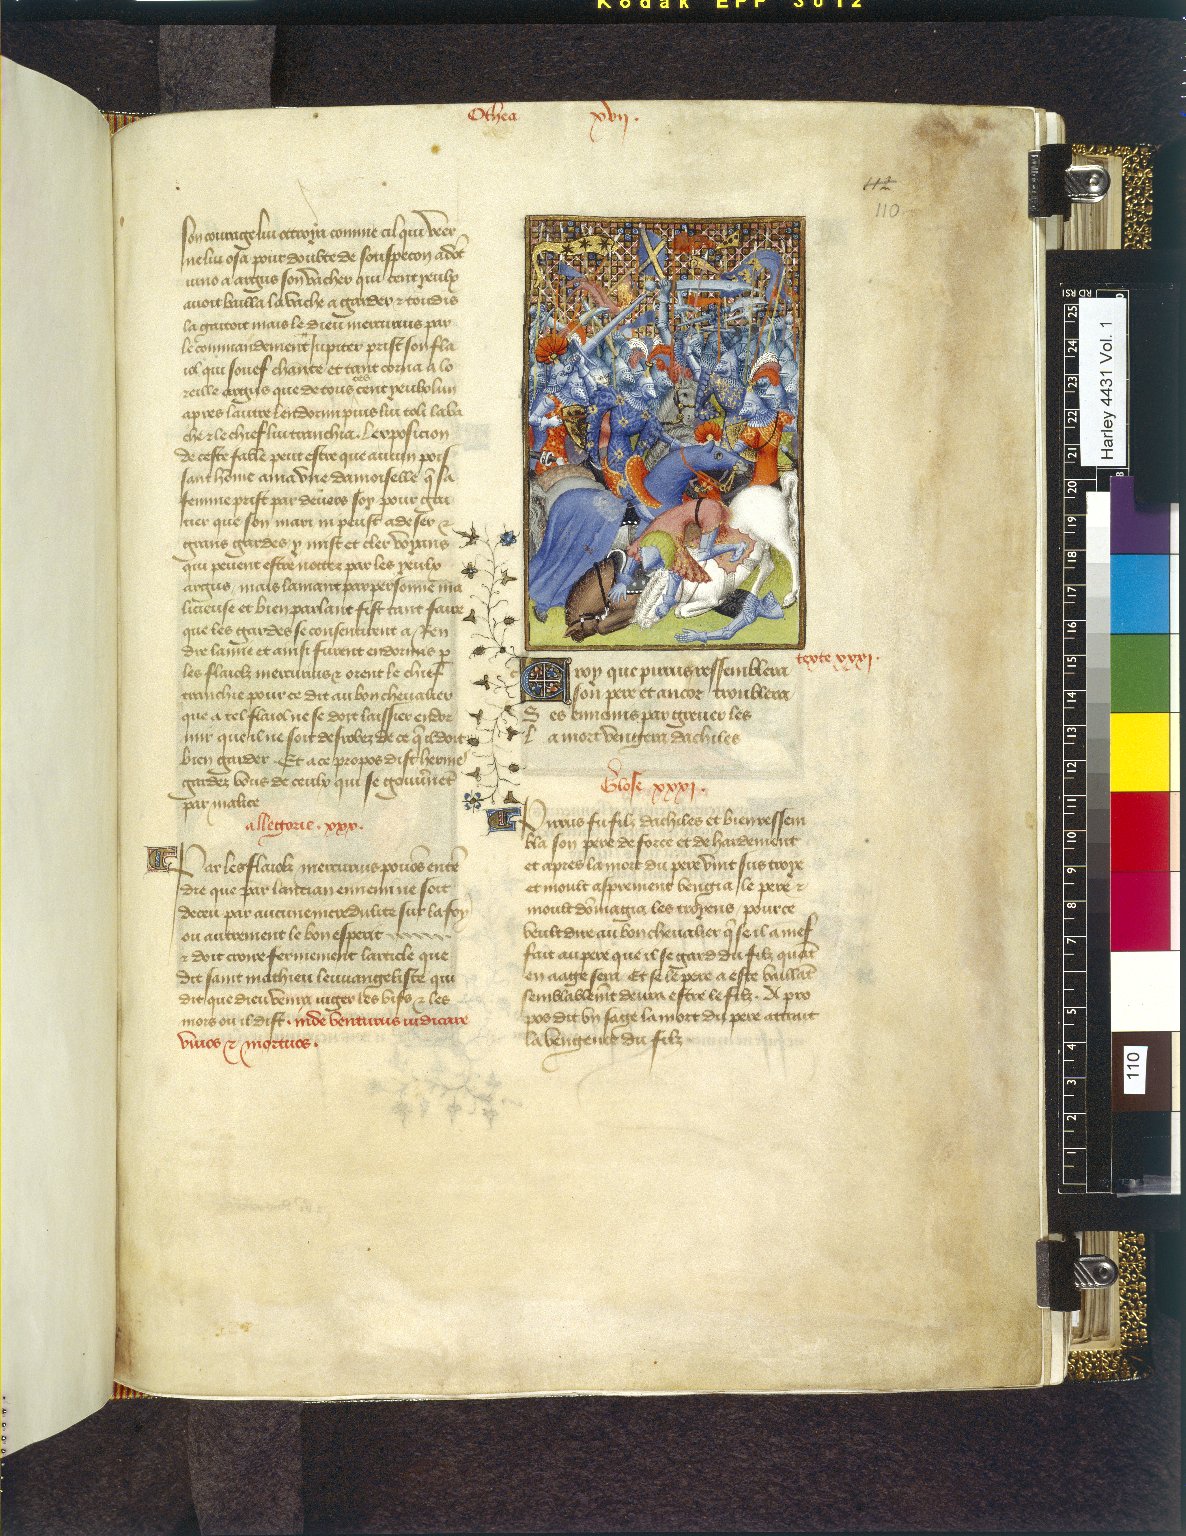 Kodak EPP 3012
Othea xvii.
112
110
son courage lui ottroya comme cil qui veer
ne lui osa pour doubte de souspecon adont
iuno a argus son vachier qui cent yeulx
avoit bailla la vache a garder et toudis
la gaitoit mais le dieu mercurius par
le commandement Jupiter prist son fla
iol qui souef chante et tant corna a lo
reille argus que de tous ces cent yeulx lun
apres lautre lendormi puis lui toli la va
che et le chief lui trancha. Lexposicion
de ceste fable peut estre que aucun pois
sant homme ama une damoiselle que sa
femme prist par devers soy pour gai
tier que son mari ni peust adeser et
grans gardes y mist et cler voyans
qui peuent estre nottez par les yeulx
argus, mais lamant par personne ma
licieuse et bien parlant fist tant faire
que les gardes se consentirent a Ren
dre lamie et ainsi furent endormis p
les flaiolz mercurius et orent le chief
tranchie pour ce dit au bon chevalier
que a tel flaiol ne se doit laissier endor
mir que il ne soit desrobez de ce quil doit
bien garder. Et a ce propos dist hermes
gardez vous de ceulx qui se gouvernent
par malice
allegorie. xxx.
Par les flaiolz mercurius pouons enten
dre que par lancian ennemi ne soit
deceu par aucune incredulite sur la foy
ou autrement le bon esperit
et doit croire fermement larticle que
dit saint mathieu leuuangeliste qui
dit que dieu venra iuger les vifs et les
mors ou il dist. inde venturus iudicare
vivos et mortuos.
texte xxxi.
Croy que pirus ressemblera
son pere et ancor troublera
Ses ennemis par grever les
La mort vengera dachiles
Glose xxxi.
Pirrus fu filz dachiles et bien ressem
bla son pere de force et de hardement
et apres la mort du pere vint sus troye
et moult asprement vengia le pere et
moult domagia les troyens, pour ce
veult dire au bon chevalier que se il a mef
fait au pere que il se gard du filz quant
en aage sera Et se le pere a este vaillant
semblablement devra estre le filz. A pro
pos dit un sage la mort du pere attrait
la vengence du filz
Harley 4431 Vol. 1
25
24
23
22
21
20
19
18
17
16
15
14
13
12
11
10
9
8
7
6
5
4
3
2
1
110